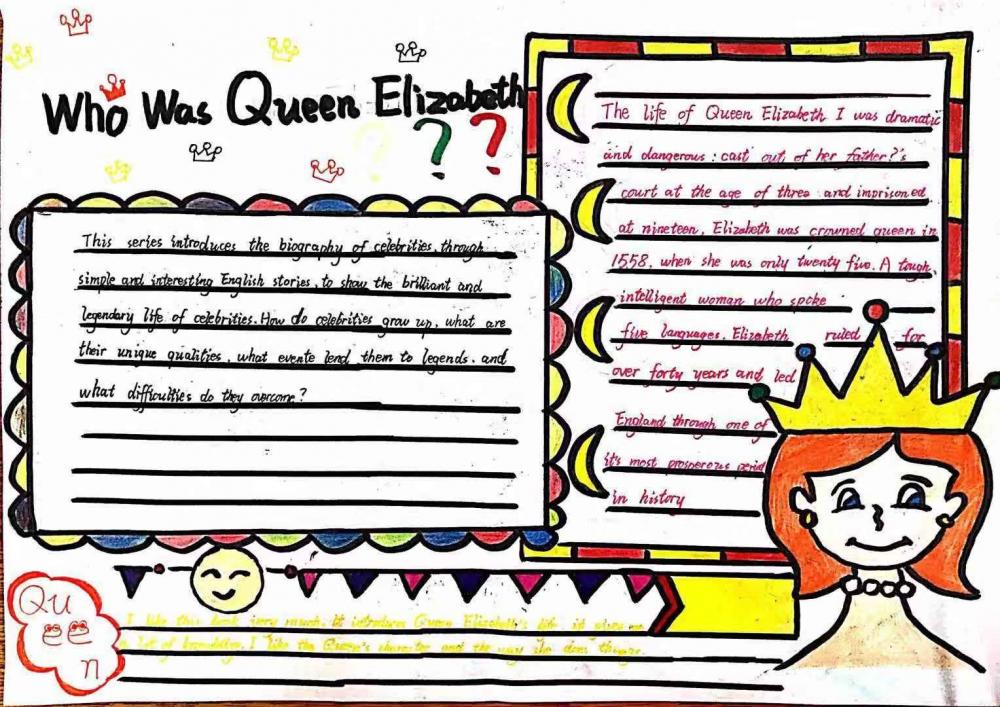 Who Was Queen Elizabeth
? ? ?
This series introduces the biography of celebrities, through
simple and interesting English stories, to show the brilliant and
legendary life of celebrities. How do celebrities grow up, what are
their unique qualities, what evente lend them to legends, and
what difficulties do they overcome?
The life of Queen Elizabeth I was dramatic
and dangerous: cast out of her father?'s
court at the age of three and imprisoned
at nineteen, Elizabeth was crowned queen in
1558, when she was only twenty five. A tough,
intelligent woman who spoke
five languages, Elizabeth ruled for
over forty years and led
England through one of
it's most prosperous period
in history
QU
EE
n
I like this book very much. It introduces Queen Elizabeth's life. it gives me
a lot of knowledge. I like the Queen's character and the way she does things.